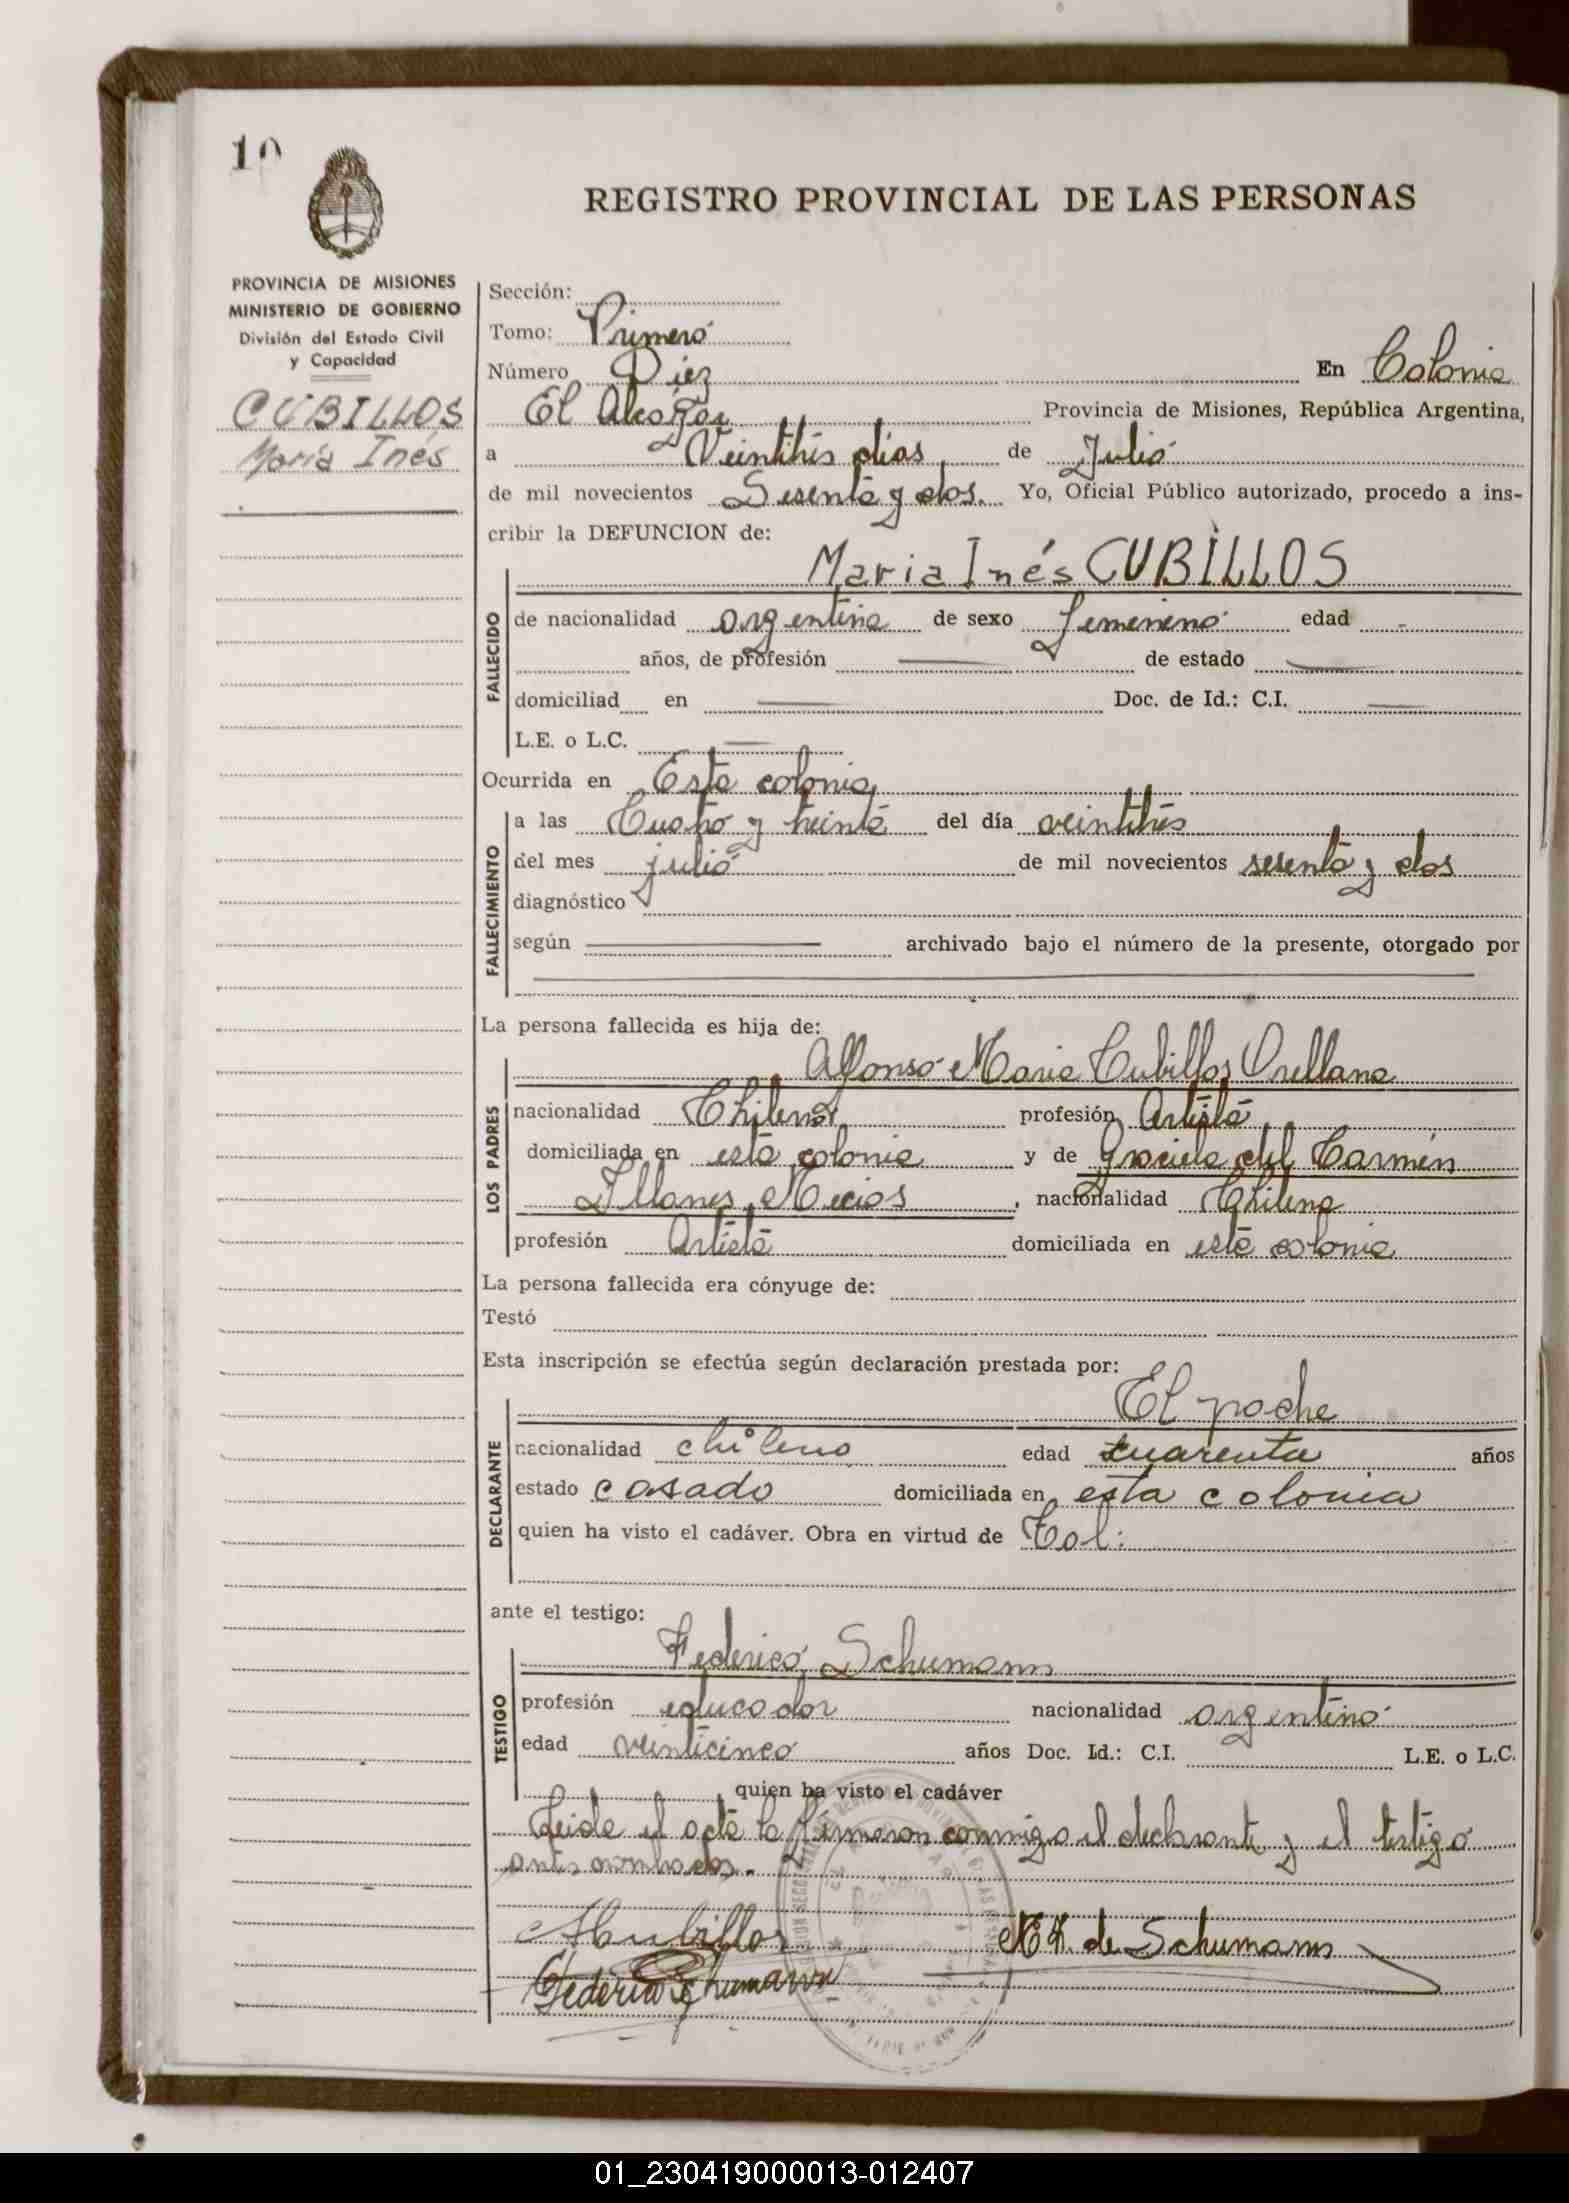 10
REGISTRO PROVINCIAL DE LAS PERSONAS
PROVINCIA DE MISIONES
MINISTERIO DE GOBIERNO
División del Estado Civil
y Capacidad
CUBILLOS
María Inés
Sección:
Tomo: Primero
Número Diez En Colonia
El Alcazar Provincia de Misiones, República Argentina,
a Veintitrés dias de Julio
de mil novecientos Sesenta y dos. Yo, Oficial Público autorizado, procedo a ins-
cribir la DEFUNCION de:
Maria Inés CUBILLOS
FALLECIDO
de nacionalidad argentina de sexo femenino edad -
años, de profesión — de estado —
domiciliad en — Doc. de Id.: C.I. —
L.E. o L.C. —
Ocurrida en Esta colonia
FALLECIMIENTO
a las Cuatro y treinta del día veintitrés
del mes julio de mil novecientos sesenta y dos
diagnóstico
según — archivado bajo el número de la presente, otorgado por
La persona fallecida es hija de:
Alfonso Maria Cubillos Orellana
LOS PADRES
nacionalidad Chileno profesión Artista
domiciliada en esta colonia y de Graciela del Carmen
Illanes Mecias, nacionalidad Chilena
profesión Artista domiciliada en esta colonia
La persona fallecida era cónyuge de:
Testó
Esta inscripción se efectúa según declaración prestada por:
El padre
DECLARANTE
nacionalidad chileno edad cuarenta años
estado casado domiciliada en esta colonia
quien ha visto el cadáver. Obra en virtud de Tal:
ante el testigo:
Federico Schumann
TESTIGO
profesión educador nacionalidad argentino
edad veinticinco años Doc. Id.: C.I. L.E. o L.C.
quien ha visto el cadáver
Leida el acta la firmaron conmigo el declarante y el testigo
antes nombrados.
ACubillos
de Schumann
Federico Schumann
01_230419000013-012407